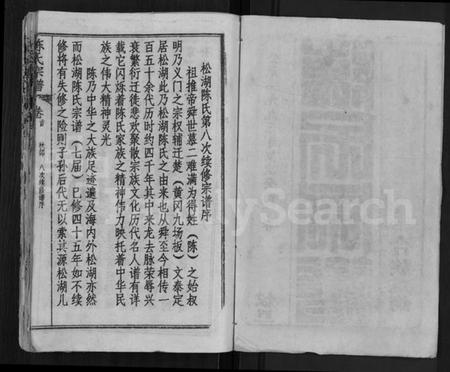 松湖陈氏第八次续修宗谱序
祖推帝舜世墓二难满为得姓（陈）之始叔
明乃义门之宗权辅迁楚（黄冈九场板）文泰定
居松湖此乃松湖陈氏之由来也从舜至今相传一
百五十余代历时约四千年其中来龙去脉荣辱兴
衰繁衍迁徙悲欢聚散宗族文化历代名人谱有详
载它闪烁着陈氏家族之精神伟力映托着中华民
族之伟大精神灵光
陈乃中华之大族足迹遍及海内外松湖亦然
而松湖陈氏宗谱（七届）已修四十五年如不续
修将有失修之险则子孙后代无以索其源松湖儿
陈氏宗谱
卷首
八次续修谱序
MySearch